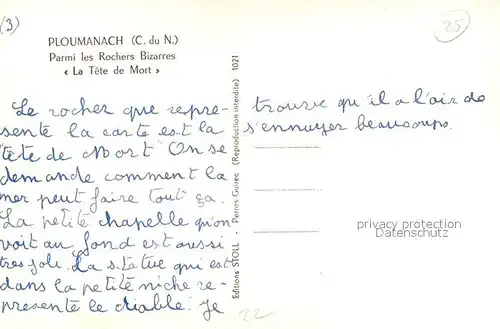 (3)
PLOUMANACH (C. du N.)
Parmi les Rochers Bizarres
« La Tête de Mort »
Le rocher que repre-
sente la carte est la
tête de Mort On se
demande comment la
mer peut faire tout ça.
La petite chapelle qu'on
voit au fond est aussi
tres jolie. La statue qui est
dans la petite niche re-
presente le diable. Je
Editions STOLL - Perros-Guirec (Reproduction interdite) 1021
25
trouve qu'il a l'air de
s'ennuyer beaucoup.
privacy protection
Datenschutz
22